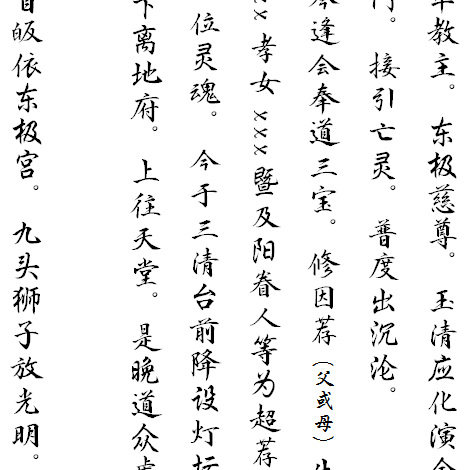 教主。 东极慈尊。 玉清应化演
门。 接引亡灵。 普度出沉沦。
今逢会奉道三宝。 修因荐（父或母）
xx 孝女 xxx 暨及阳眷人等为超荐
位灵魂。 今于三清台前降设灯坛
下离地府。 上往天堂。 是晚道众虔
首皈依东极宫。 九头狮子放光明。